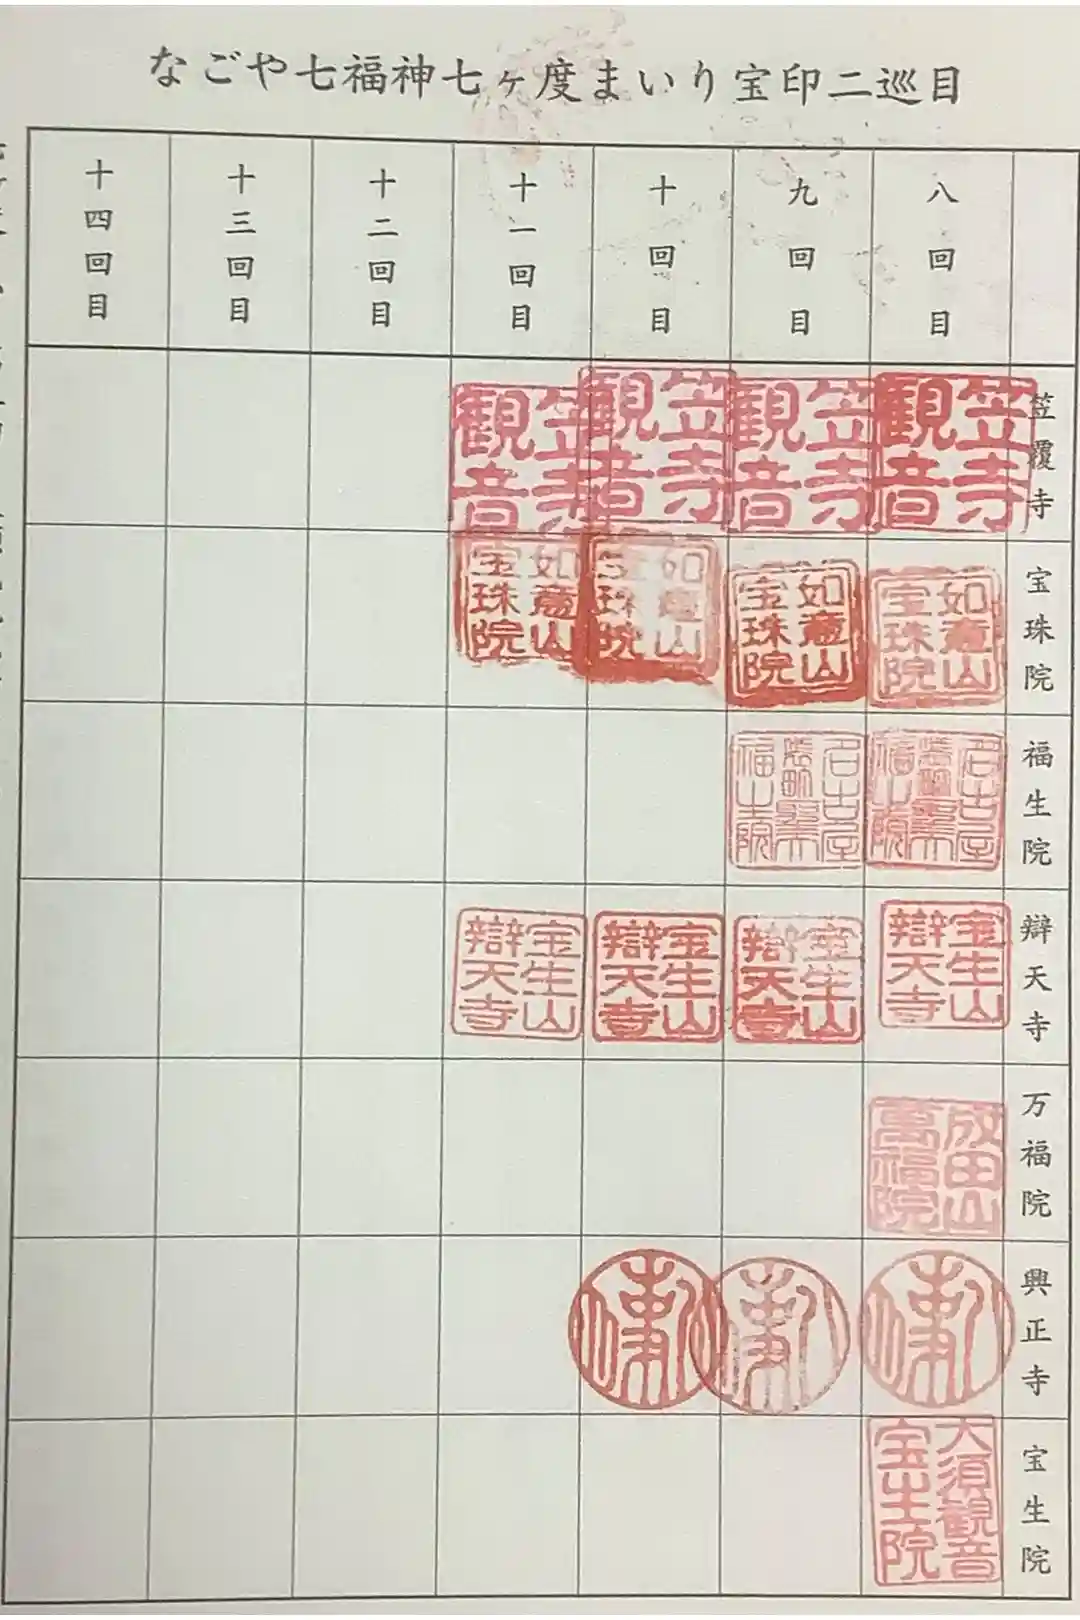 なごや七福神七ヶ度まいり宝印二巡目
八回目
九回目
十回目
十一回目
十二回目
十三回目
十四回目
笠覆寺
笠寺観音
笠寺観音
笠寺観音
笠寺観音
宝珠院
如意山宝珠院
如意山宝珠院
如意山宝珠院
如意山宝珠院
福生院
名古屋袋町聖天福生院
名古屋袋町聖天福生院
辯天寺
宝生山辯天寺
宝生山辯天寺
宝生山辯天寺
宝生山辯天寺
万福院
成田山萬福院
興正寺
宝生院
大須観音宝生院